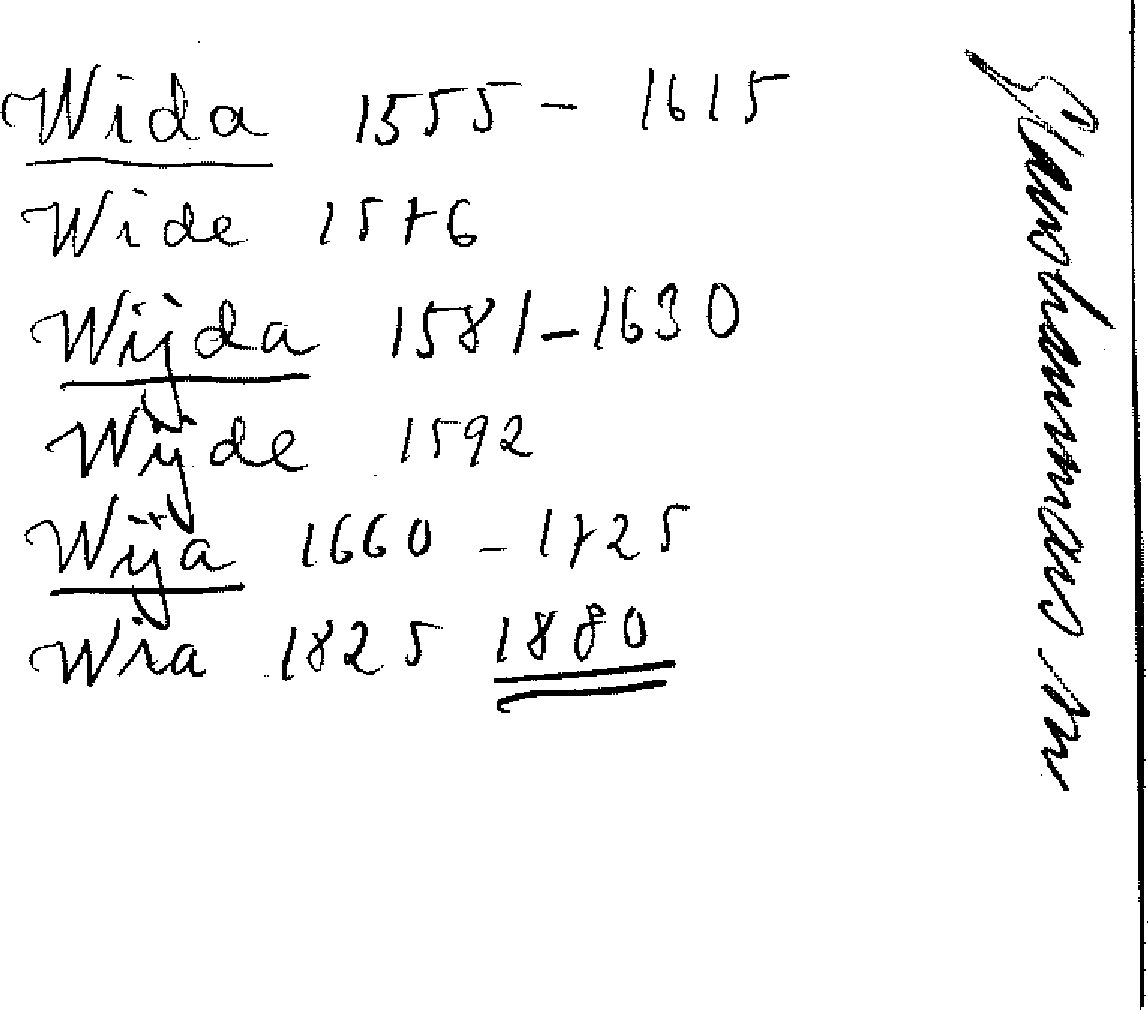 Wida 1555 - 1615
Wide 1576
Wijda 1581 - 1630
Wijde 1592
Wija 1660 - 1725
Wia 1825 1880